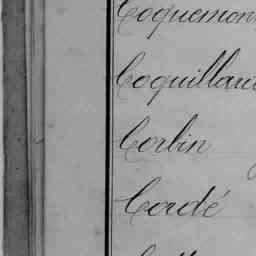 Coquemon
Coquillard
Corbin
Cordé